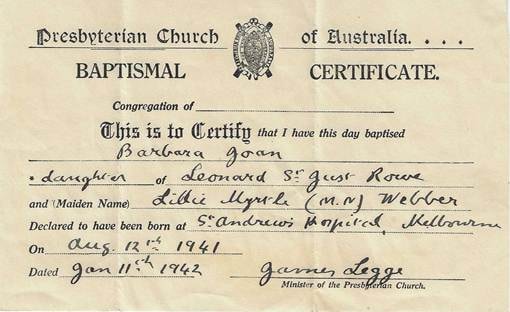 Presbyterian Church of Australia. . . .
BAPTISMAL CERTIFICATE.
Congregation of
This is to Certify that I have this day baptised
Barbara Joan
daughter of Leonard St Just Rowe
and (Maiden Name) Lillie Myrtle (M.N) Webber
Declared to have been born at St Andrews Hospital, Melbourne
On Aug. 12th 1941
Dated Jan 11th 1942 James Legge
Minister of the Presbyterian Church.